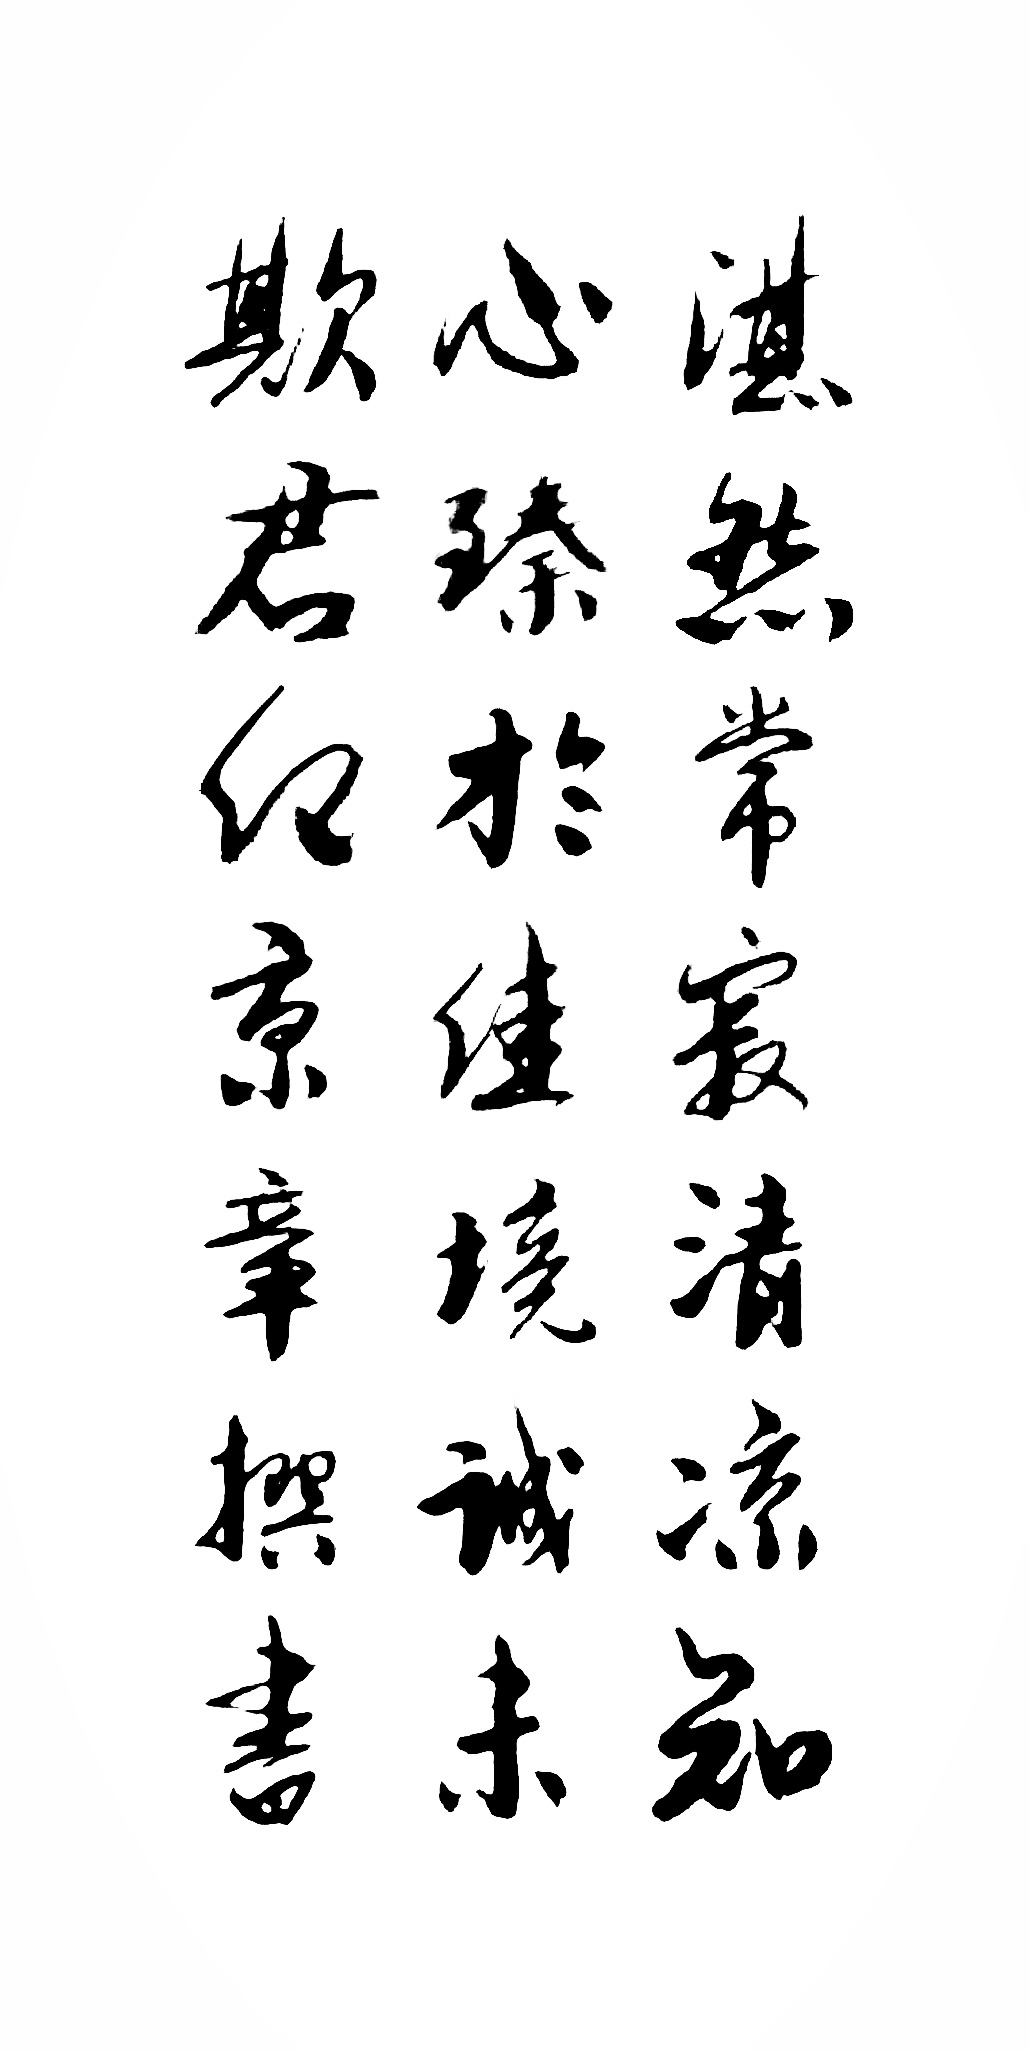 湛然常寂清凉知
心臻於佳境诚未
欺君仰京章撰書